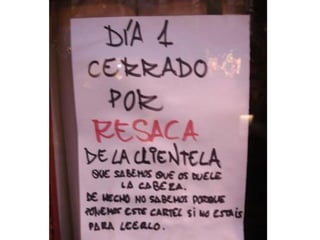 DÍA 1
CERRADO
POR
RESACA
DE LA CLIENTELA
QUE SABEMOS QUE OS DUELE
LA CABEZA.
DE HECHO NO SABEMOS PORQUE
PONEMOS ESTE CARTEL SI NO ESTAÍS
PARA LEERLO.